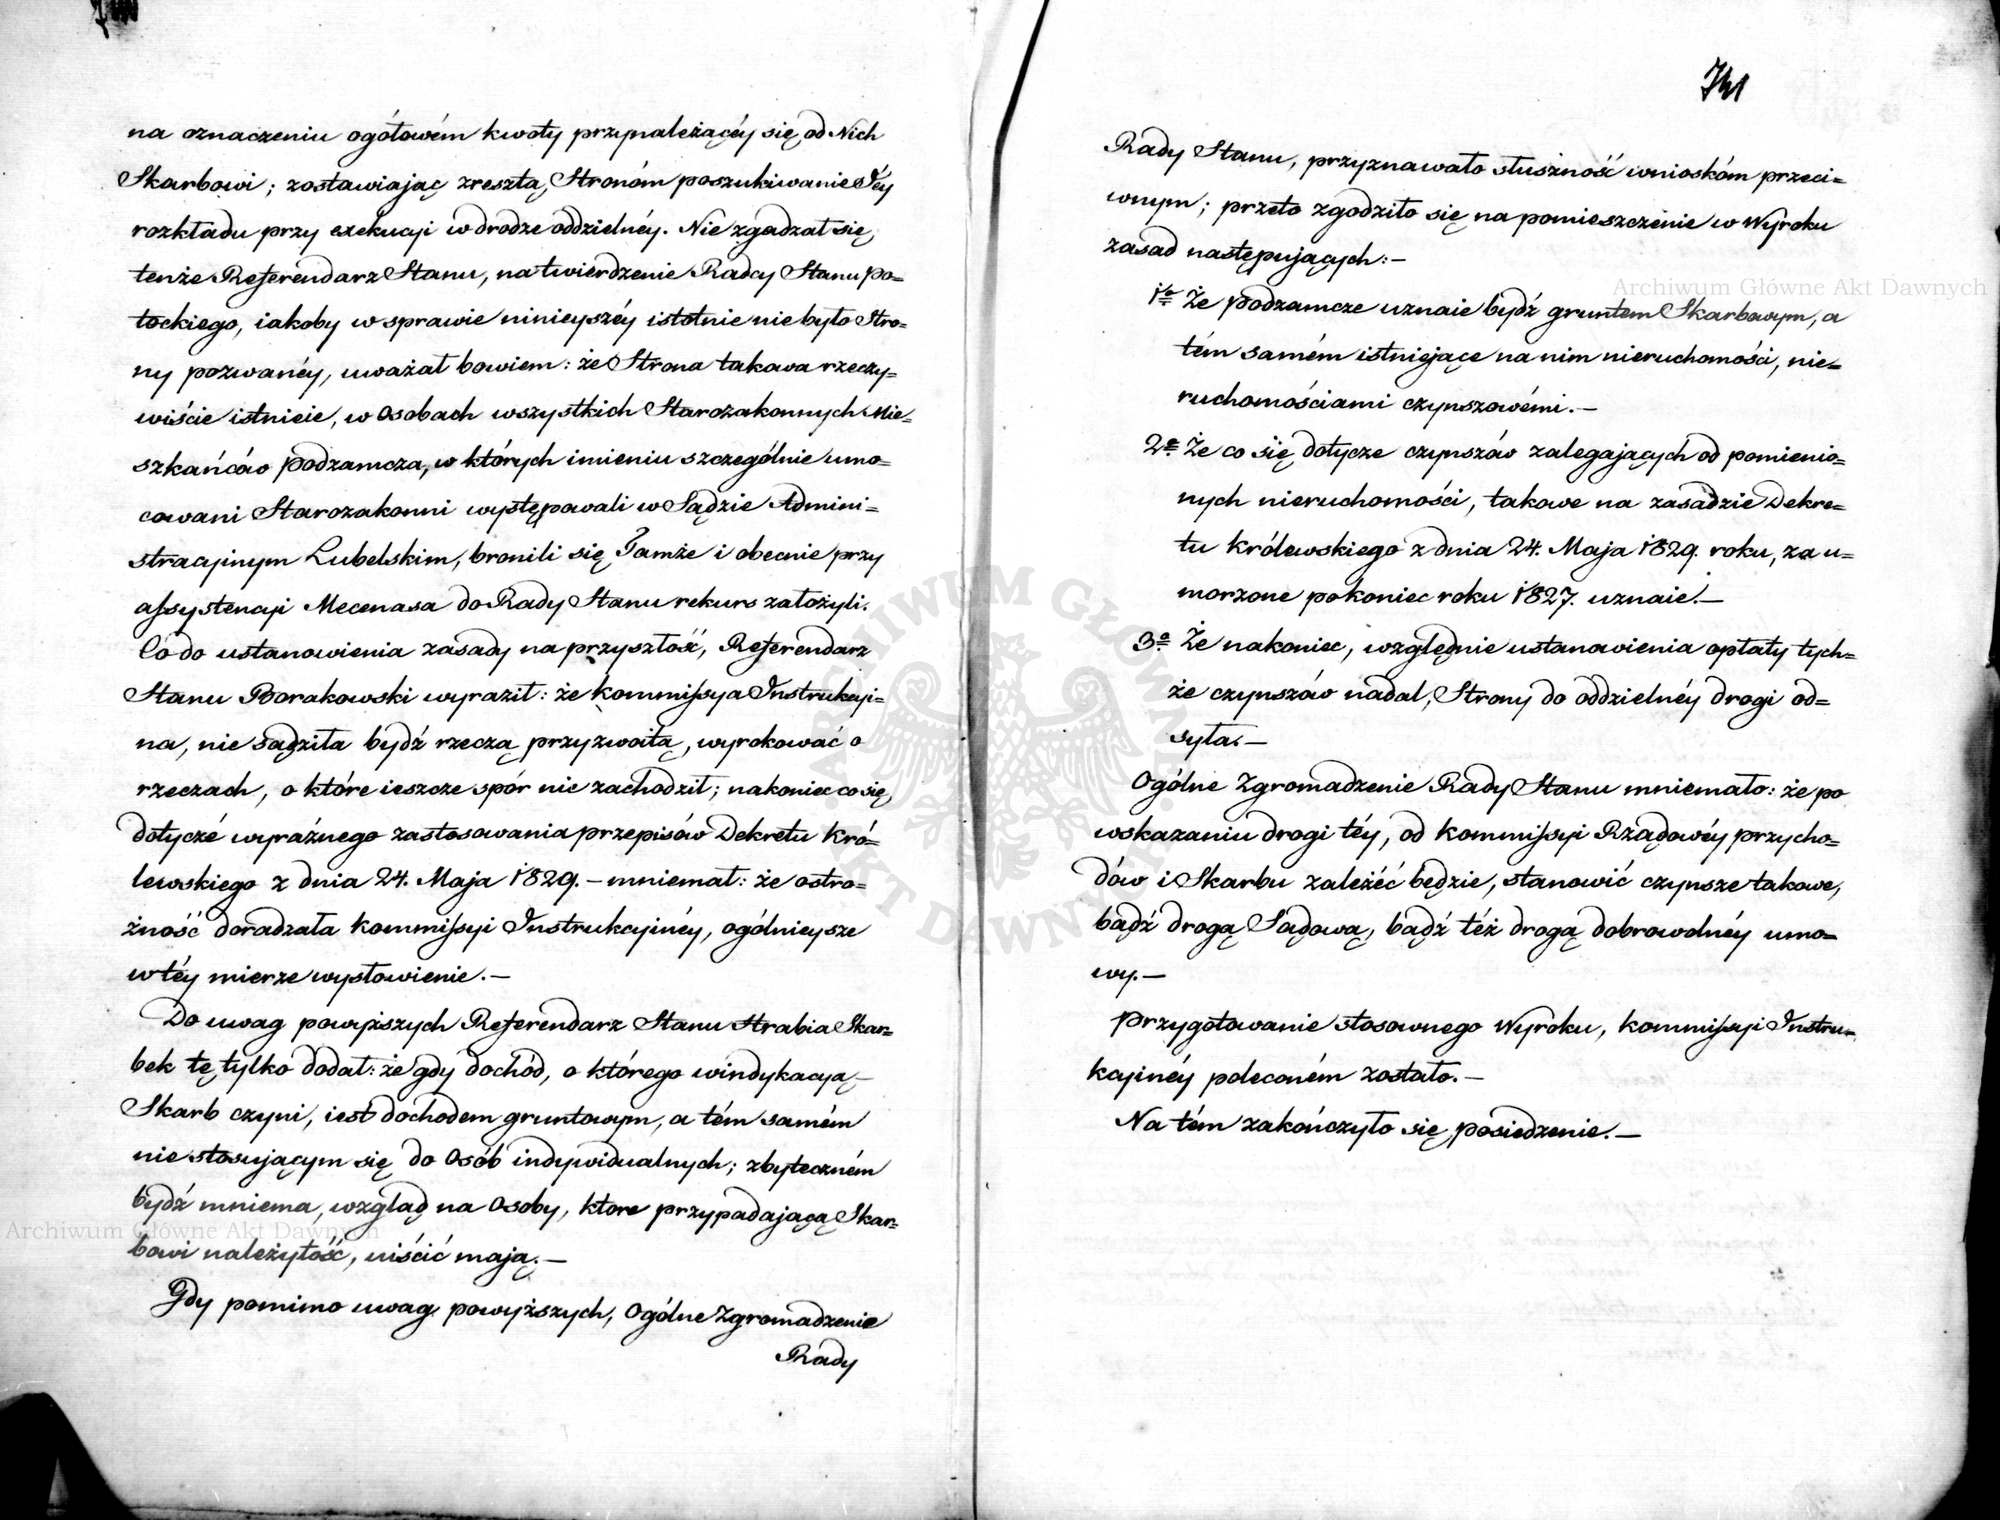 na oznaczeniu ogółowém kwoty przynależącéy się od Nich
Skarbowi; zostawiając zresztą, Stronóm poszukiwanie Jéy
rozkładu przy exekucji w drodze oddzielnéy. Nie zgadzał się,
tenże Referendarz Stanu, na twierdzenie Radcy Stanu Po=
tockiego, iakoby w sprawie ninieyszéy istotnie nie było Stro=
ny pozwanéy, uważał bowiem: że Strona takowa rzeczy=
wiście istnieie, w Osobach wszystkich Starozakonnych Mie=
szkańców Podzamcza, w których imieniu szczególnie umo=
cowani Starozakonni występowali w Sądzie Admini=
stracyinym Lubelskim, bronili się Tamże i obecnie przy
assystencyi Mecenasa do Rady Stanu rekurs założyli.
Co do ustanowienia zasady na przyszłość, Referendarz
Stanu Borakowski wyraził: że Kommissya Instrukcyi=
na, nie sądziła bydź rzeczą przyzwoitą, wyrokować o
rzeczach, o które ieszcze spór nie zachodził; nakoniec co się
dotyczé wyraźnego zastosowania przepisów Dekretu Kró=
lewskiego z dnia 24. Maja 1829. – mniemał: że ostro=
żność doradzała Kommissyi Instrukcyinéy, ogólnieysze
w téy mierze wysłowienie. –
Do uwag powyższych Referendarz Stanu Hrabia Skar=
bek tę tylko dodał: że gdy dochód, o którego windykacyą –
Skarb czyni, iest dochodem gruntowym, a tém samém
nie stosującym się do Osób indywidualnych; zbyteczném
bydź mniema, wzgląd na Osoby, które przypadającą Skar=
bowi należytość, uiścić mają. –
Gdy pomimo uwag powyższych, Ogólne Zgromadzenie
Rady
741
Rady Stanu, przyznawało słuszność wnioskóm przeci=
wnym; przeto zgodziło się na pomieszczenie w Wyroku
zasad następujących: –
1o Że Podzamcze uznaie bydź gruntem Skarbowym, a
tém samém istniejące na nim nieruchomości, nie=
ruchomościami czynszowémi. –
2o Że co się dotycze czynszów zalegających od pomienio=
nych nieruchomości, takowe na zasadzie Dekre=
tu Królewskiego z dnia 24. Maja 1829. roku, za u=
morzone po koniec roku 1827. uznaie. –
3o Że nakoniec, względnie ustanowienia opłaty tych=
że czynszów nadal, Strony do oddzielnéy drogi od=
syła. –
Ogólne Zgromadzenie Rady Stanu mniemało: że po
wskazaniu drogi téy, od Kommissyi Rządowéy Przycho=
dów i Skarbu zależéć będzie, stanowić czynsze takowe,
bądź drogą Sądową, bądź téż drogą dobrowolnéy umo=
wy. –
Przygotowanie stosownego Wyroku, Kommissyi Instru=
kcyinéy poleconém zostało. –
Na tém zakończyło się posiedzenie. –
Archiwum Główne Akt Dawnych
Archiwum Główne Akt Dawnych
ARCHIWUM GŁÓWNE AKT DAWNYCH